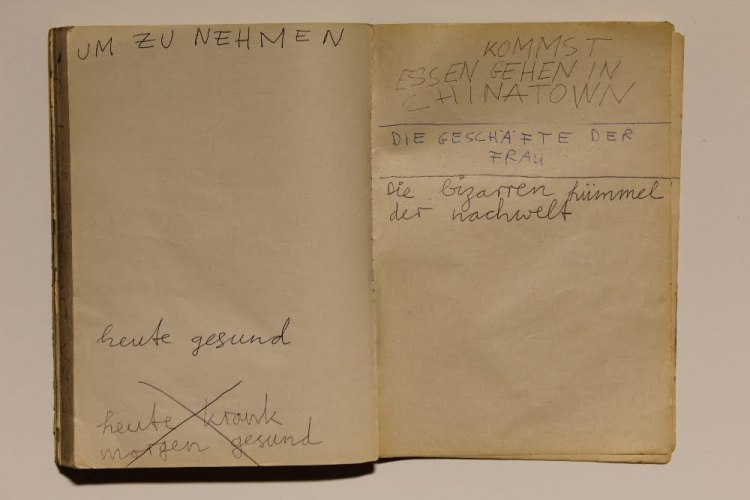 UM ZU NEHMEN
heute gesund
heute krank
morgen gesund
KOMMST
ESSEN GEHEN IN
CHINATOWN
DIE GESCHÄFTE DER
FRAU
Die bizarren hümmel
der nachwelt